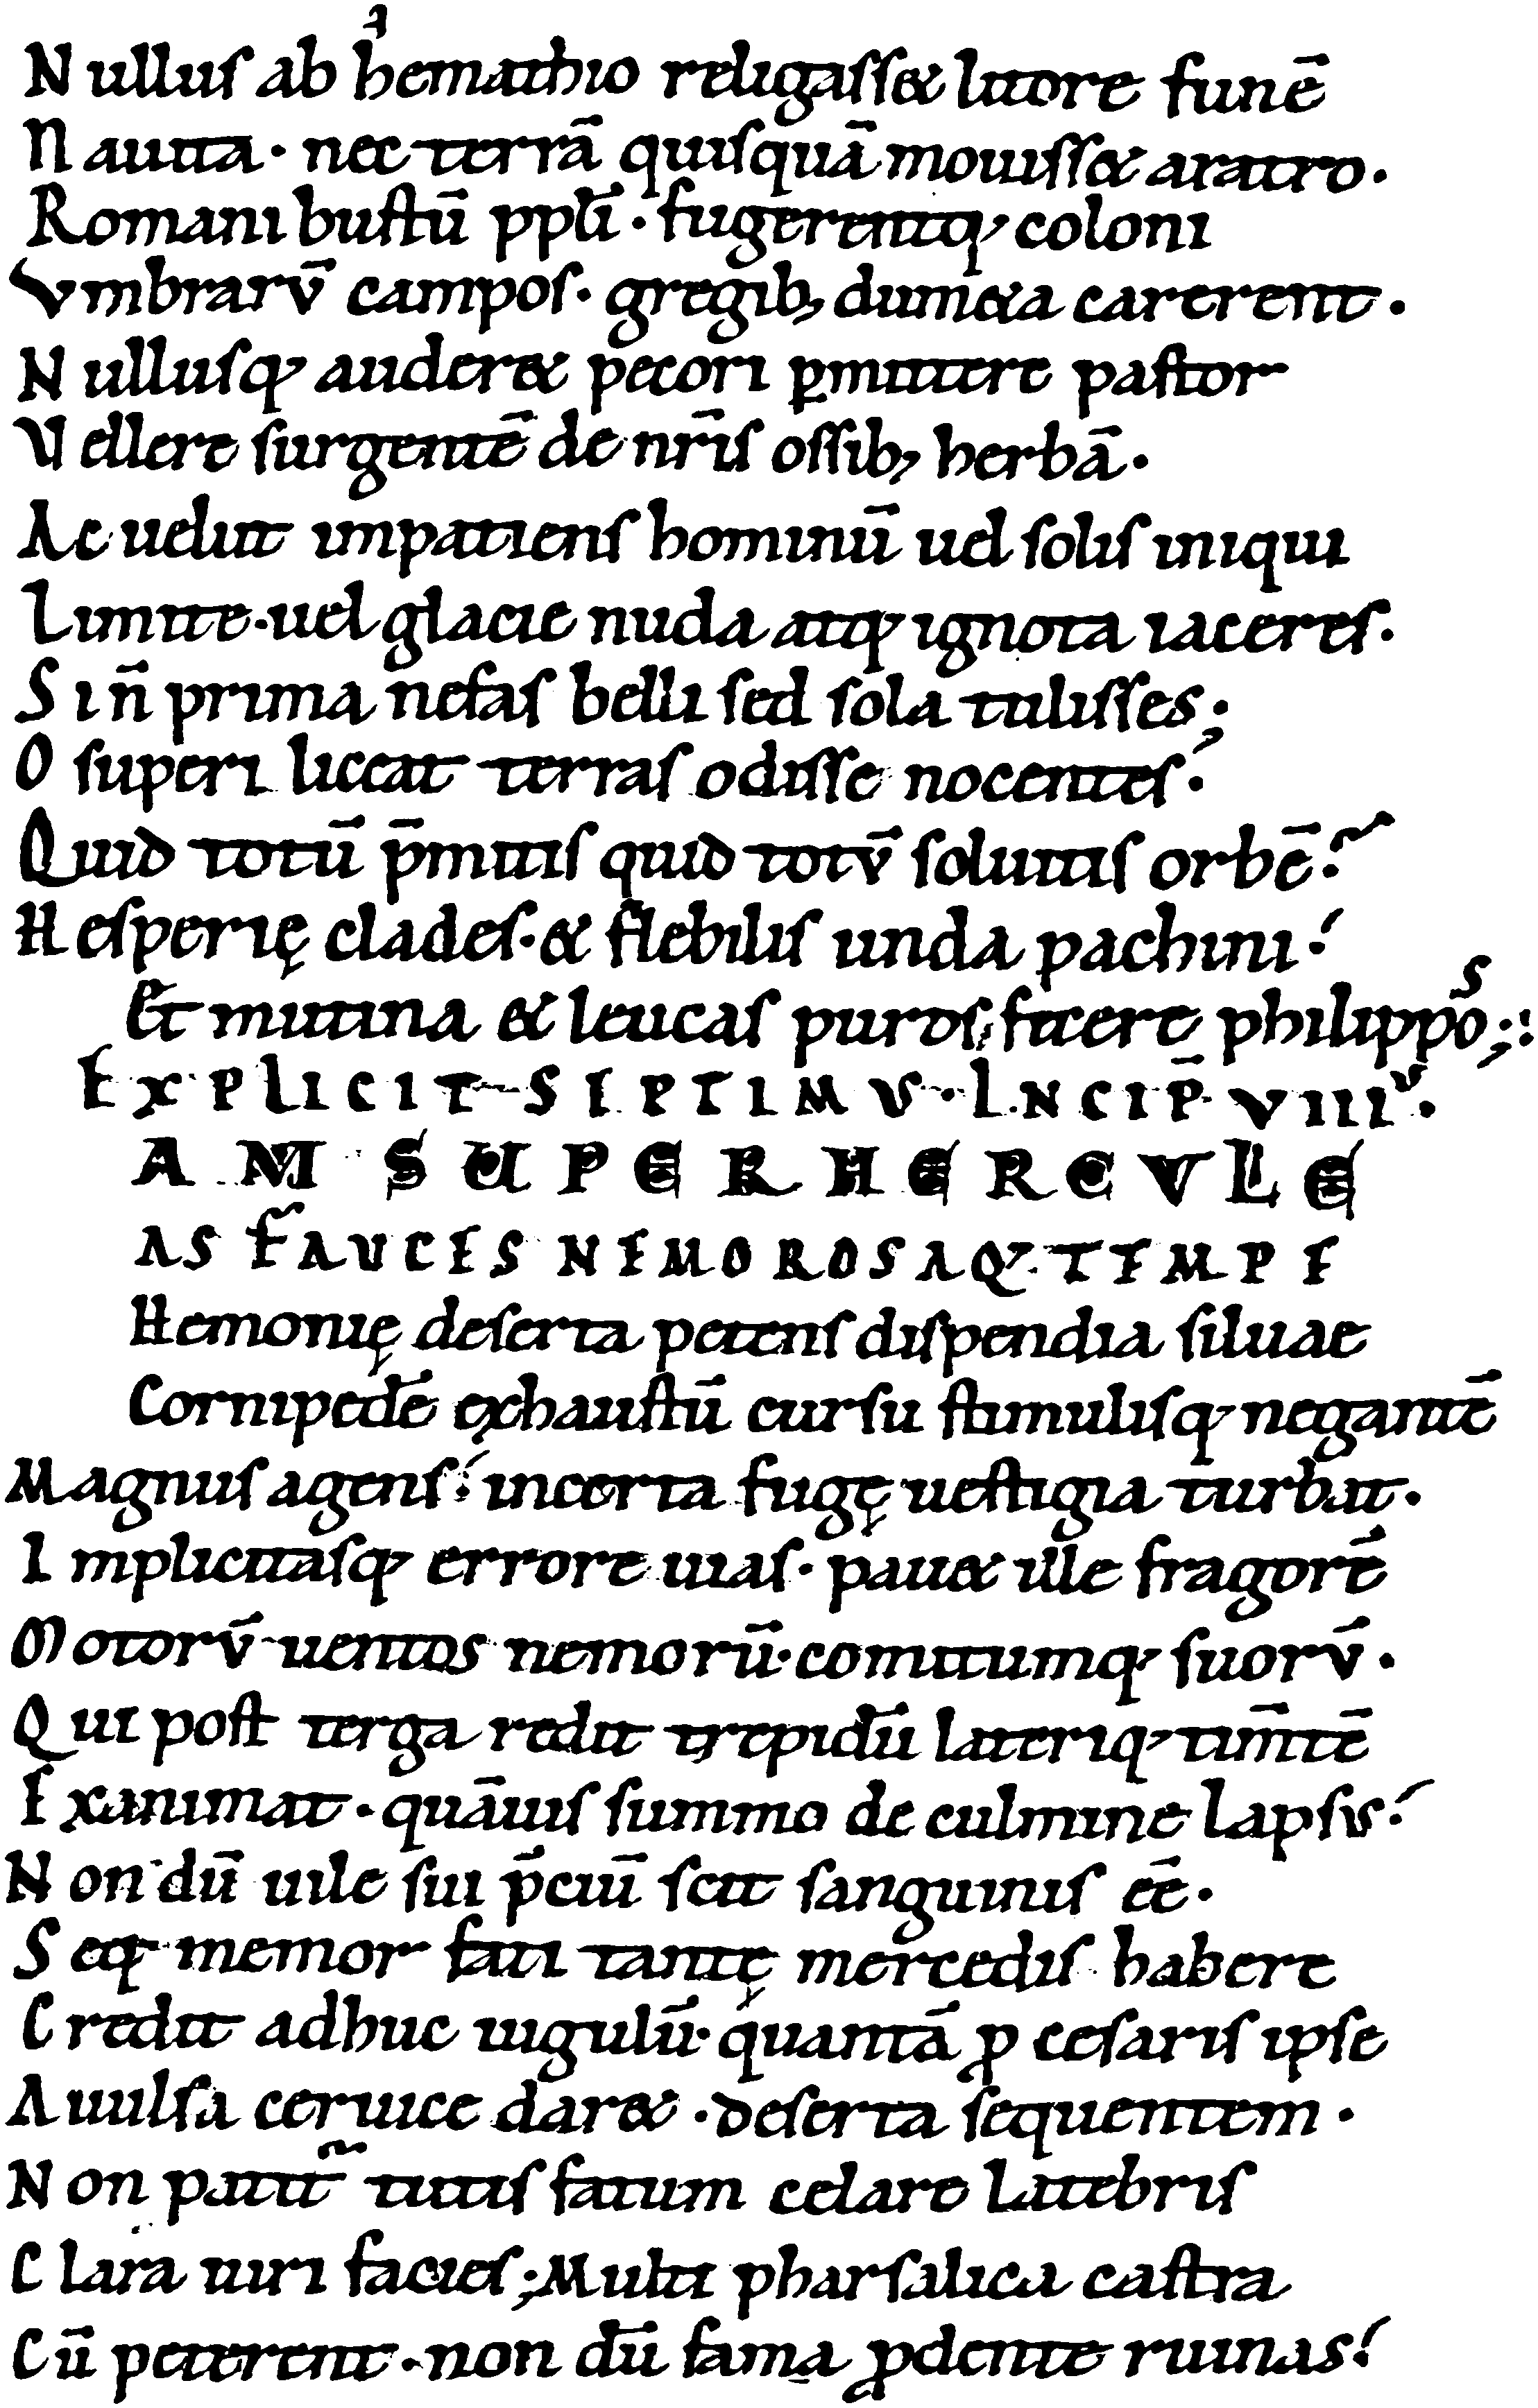 Nulluſ ab hemathio religaſſ& litore funē
Nauita · nec terrā quiſquā mouiſſ& aratro·
Romani buſtū ppłi · fugerentq; coloni
Vmbrarū campoſ· gregib; dum&a carerent·
Nulluſq; auder& pecori ꝑmittere paſtor
Vellere ſurgentē de nr̄iſ oſſib; herbā·
Ac uelut impatienſ hominū uel ſoliſ iniqui
Limite·uel glacie nuda atq; ignota iacereſ·
Si n̄ prima nefaſ belli ſed ſola tuliſſes;
O ſuperi liceat terraſ odiſſe nocenteſ·
Quid totū p̄mitiſ quid totū ſoluitiſ orbē?
Heſperię cladeſ·& flebiliſ unda pachini·
Et mutina & leucaſ puroſ fecere philippos;:
EXPLICIT SEPTIMVS·INCIP̄ VIIIV·
AM SUPER HERCVLE
AS FAUCES NEMOROSAQ; TEMPE
Hemonię deſerta petenſ diſpendia ſiluae
Cornipedē exhauſtū curſu ſtimuliſq; negantē
Magnuſ agenſ· incerta fugę ueſtigia turbat·
Implicitaſq; errore uiaſ· pau& ille fragorē
Motorū uentos nemorū·comitumq; ſuorū·
Qui poſt terga redit trepidū lateriq; tim̄tē
Exanimat·quāuiſ ſummo de culmine lapſus·
Non dū uile ſui p̄ciū ſcit ſanguiniſ eē·
Seq; memor fati tantę mercediſ habere
Credit adhuc iugulū·quantā ꝓ ceſariſ ipſe
Auulſa ceruice dar& ·deſerta ſequentem·
Non patit᷑ tutiſ fatum celare latebriſ
Clara uiri facieſ;Multi pharſalica caſtra
Cū peterent·non dū fama ꝓdente ruinas·